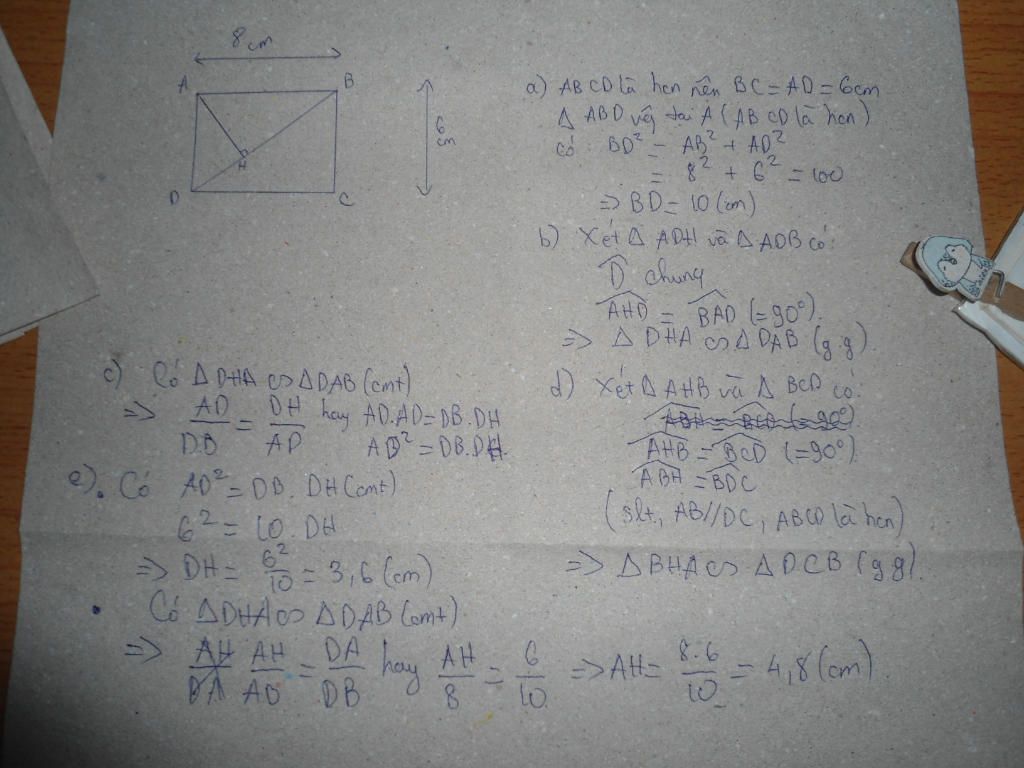 8cm
A
B
6
cm
H
D
C
a) ABCD là hcn nên BC = AD = 6cm
Δ ABD vg tại A (ABCD là hcn)
có: BD² = AB² + AD²
= 8² + 6² = 100
=> BD = 10 (cm)
b) Xét Δ ADH và Δ ADB có:
D̂ chung
AHD = BAD (=90°).
=> Δ DHA ∽ Δ DAB (g.g)
c) Có Δ DHA ∽ Δ DAB (cmt)
=> AD/DB = DH/AD hay AD.AD = DB.DH
AD² = DB.DH.
d) Xét Δ AHB và Δ BCD có:
AHB = BCD (=90°)
ABH = BDC
(slt, AB//DC, ABCD là hcn)
=> Δ BHA ∽ Δ DCB (g.g).
e). Có AD² = DB.DH (cmt)
6² = 10.DH
=> DH = 6²/10 = 3,6 (cm)
• Có Δ DHA ∽ Δ DAB (cmt)
=> AH/AD = DA/DB hay AH/8 = 6/10 => AH = 8.6/10 = 4,8 (cm)